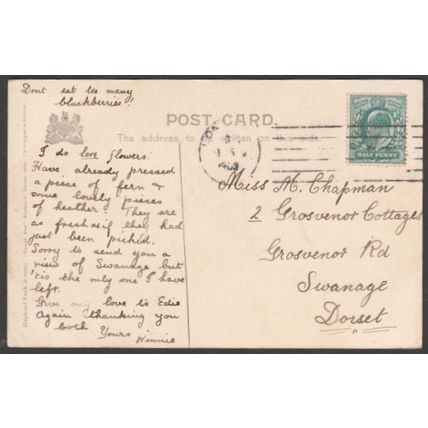 Dont eat too many
blackberries!
POST CARD.
The address to be written on this side.
HALF PENNY
I do love flowers.
Have already pressed
a piece of fern &
some lovely pieces
of heather. They are
as fresh as if they had
just been picked.
Sorry to send you a
view of Swanage but
'tis the only one I have
left.
Give my love to Edie
Again thanking you
both Yours
Winnie
Miss M. Chapman
2 Grosvenor Cottages
Grosvenor Rd
Swanage
Dorset
Raphael Tuck & Sons